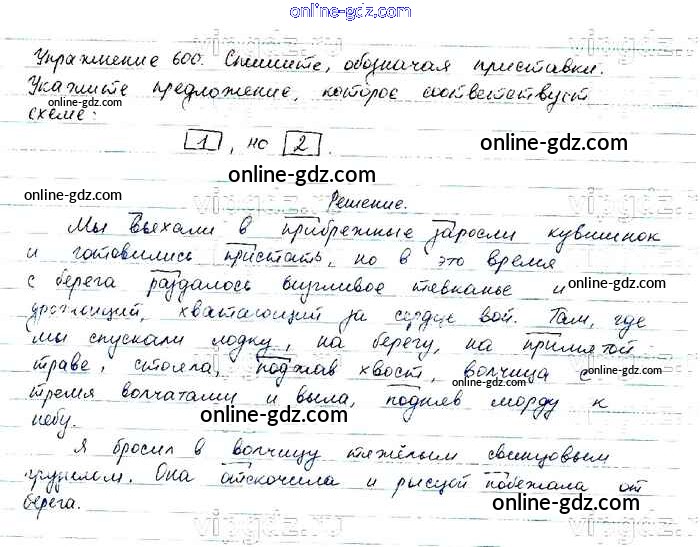 online-gdz.com
Упражнение 600. Спишите, обозначая приставки.
Укажите предложение, которое соответствует
online-gdz.com
схеме:
1, но 2.
online-gdz.com
online-gdz.com
online-gdz.com
Решение.
Мы въехали в прибрежные заросли кувшинок
online-gdz.com
и готовились пристать, но в это время
с берега раздалось визгливое тявканье и
online-gdz.com
online-gdz.com
дрожащий, хватающий за сердце вой. Там, где
мы спускали лодку, на берегу, на примятой
online-gdz.com
траве, стояла, поджав хвост, волчица с
online-gdz.com
тремя волчатами и выла, подняв морду к
online-gdz.com
небу.
Я бросил в волчицу тяжёлым свинцовым
online-gdz.com
грузилом. Она отскочила и рысцой побежала от
online-gdz.com
берега.